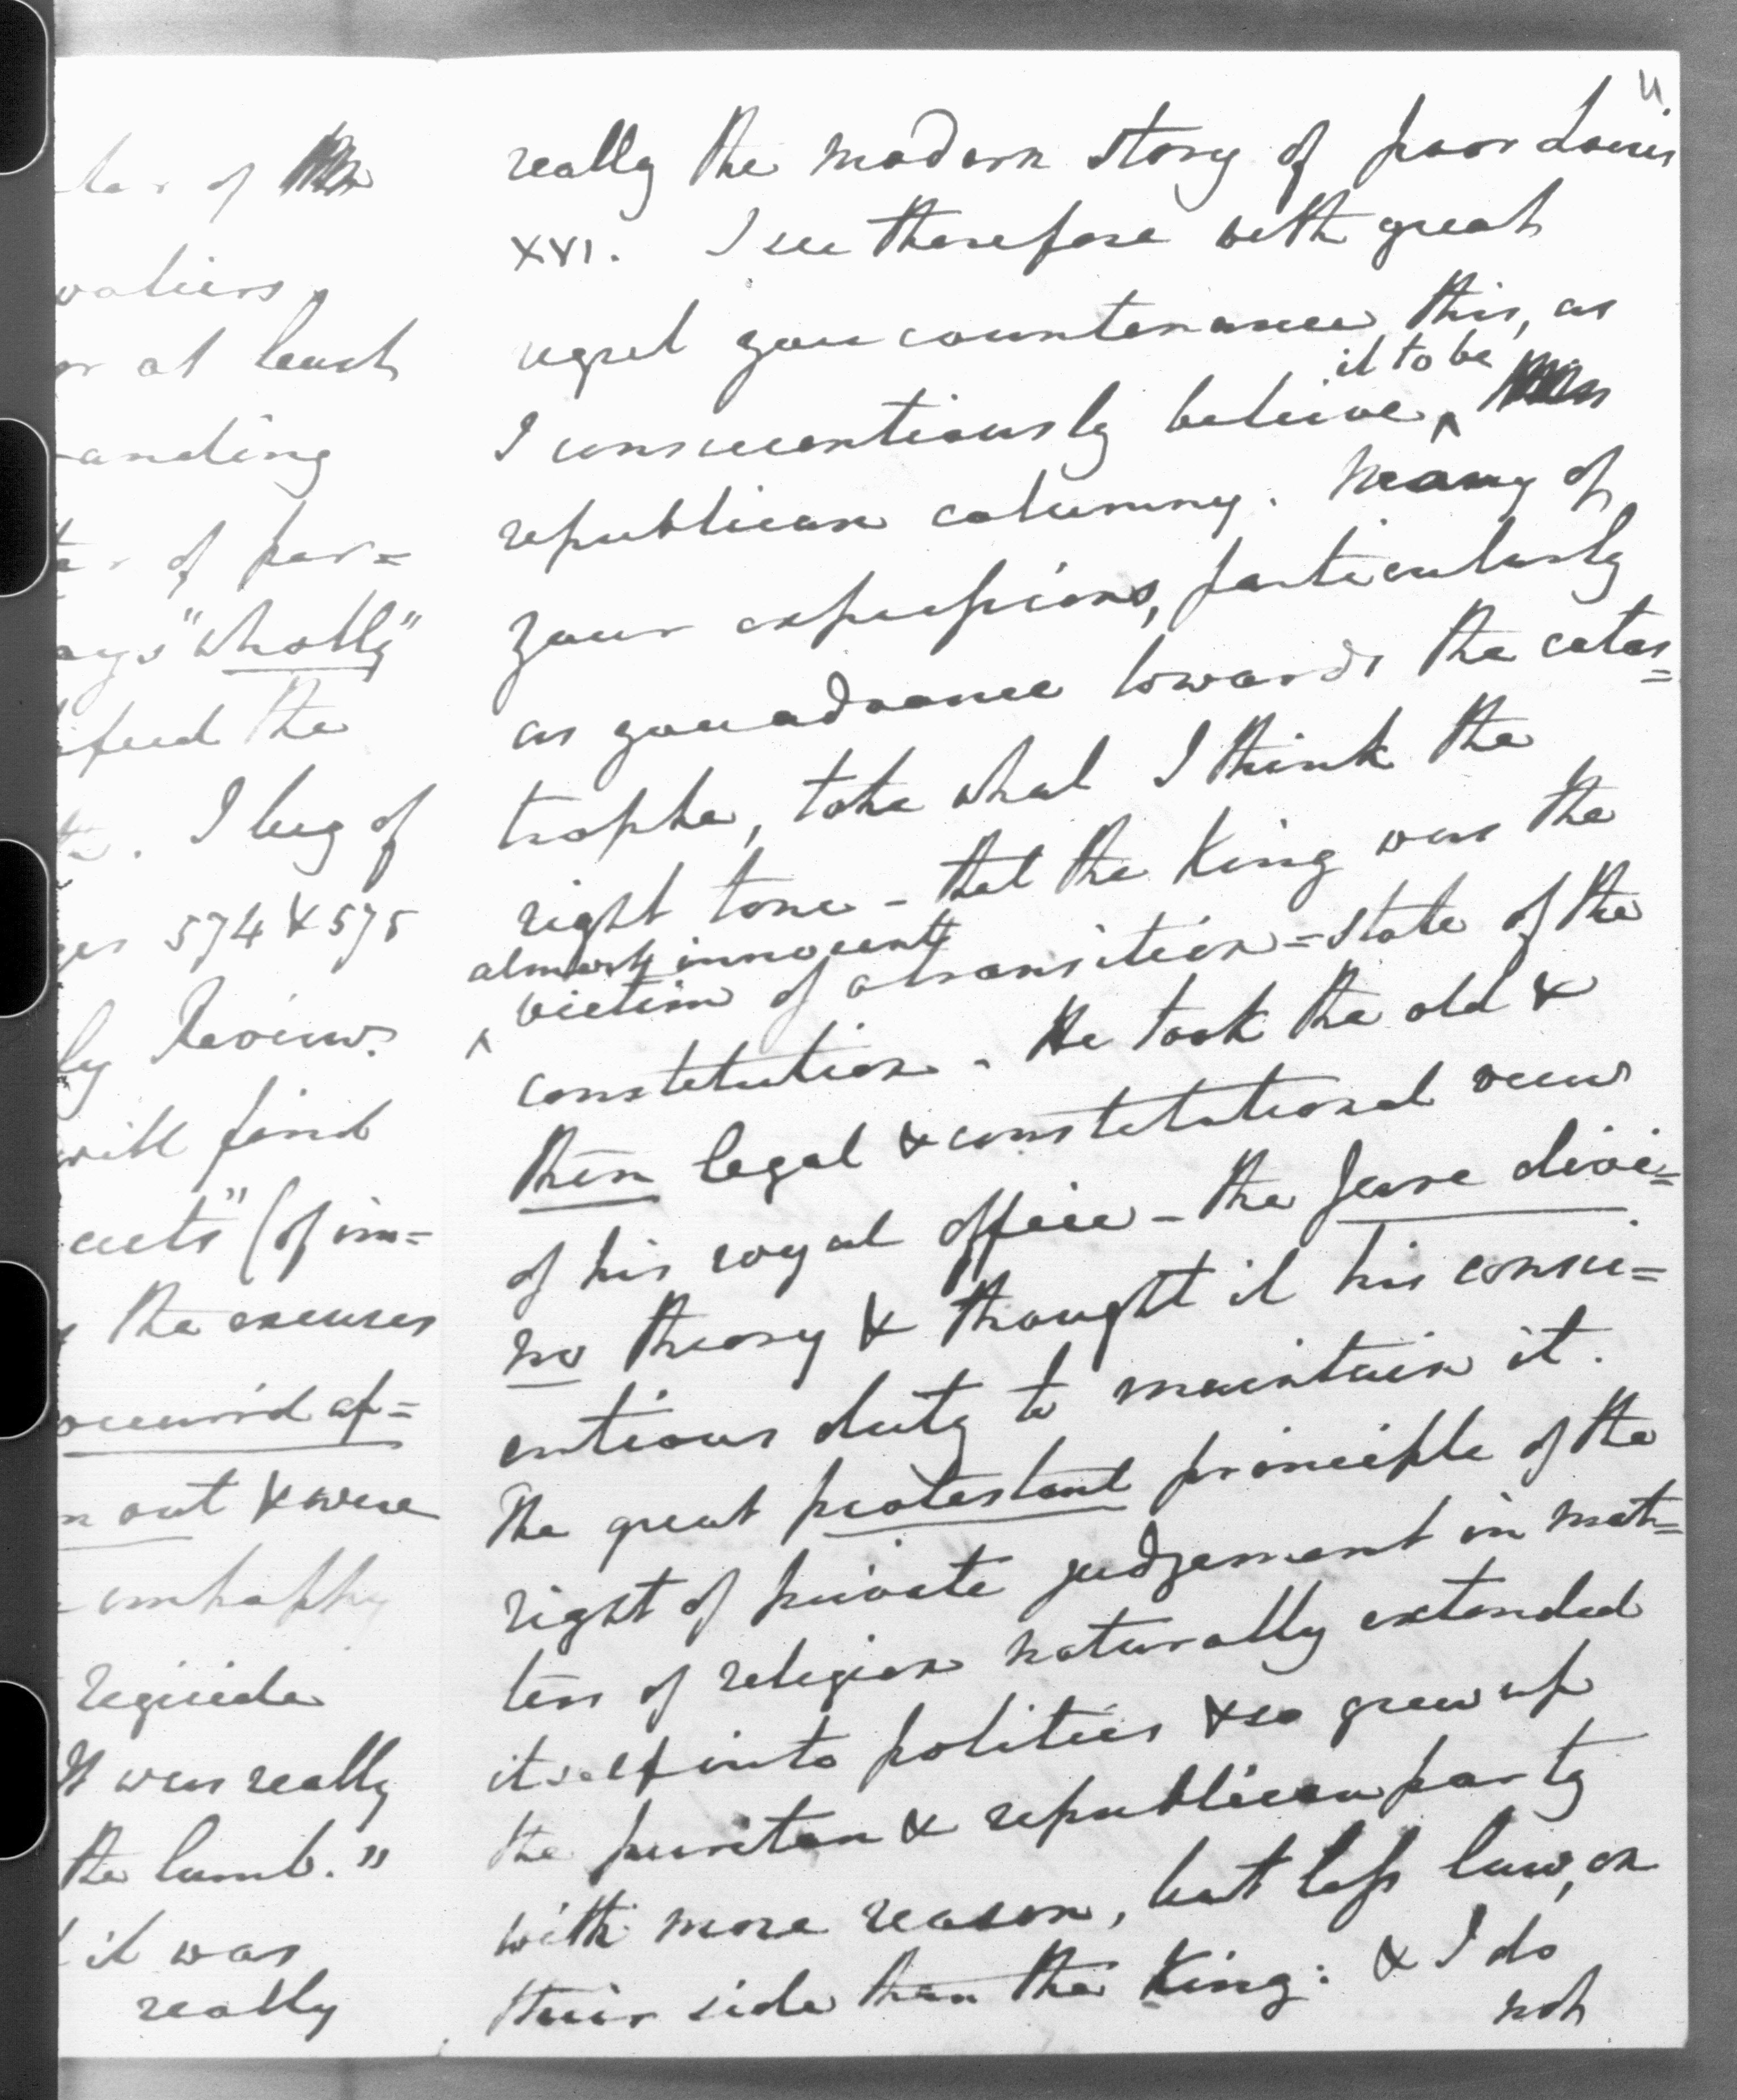 of
at least
anding
of par=
"wholly"
the
. I beg of
574 & 575
ly Review.
will find
(of im=
the excuses
occurrd af=
out & were
unhappy
regicide
It was really
the lamb."
it was
really
11.
really the modern story of poor Louis
XVI. I see therefore with great
regret you countenance this, as
I conscientiously believe it to be
republican calumny. Many of
your expressions, particularly
as you advance towards the catas=
trophe, take what I think the
right tone - that the King was the
almost innocent
victim of a transition=state of the
constitution. He took the old &
then legal & constitutional view
of his royal office - the Jure divi=
no theory & thought it his consci=
entious duty to maintain it.
The great protestant principle of the
right of private judgement in mat=
ters of religion naturally extended
itself into politics & so grew up
the puritan & republican party
with more reason, but less law, on
their side than the King: & I do
not